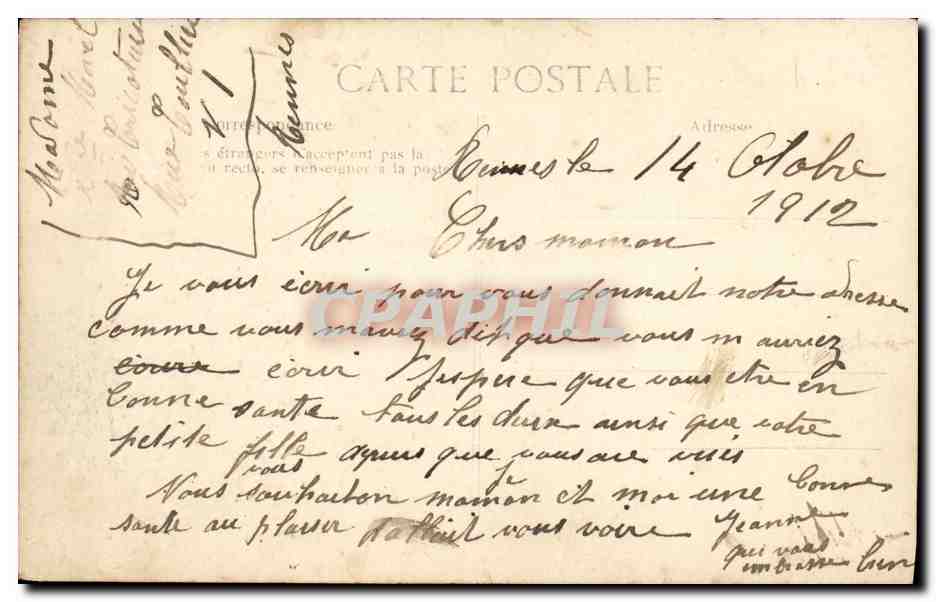 CARTE POSTALE
Correspondance
Adresse
étrangers n'acceptent pas la
recto, se renseigner à la poste
Madame
Rennes
Rennes le 14 Octobre
1912
Ma Chers maman
Je vous écrir pour vous donnait notre adresse
comme vous mavez dit que vous m auriez
écrir Jespere que vous etre en
bonne sante tous les deux ainsi que votre
petite fille que vous
Nous vous souhaiton maman et moi une bonne
sante au plaisir dallait vous voire Jeanne
qui vous
embrasse bien
CPAPHIL